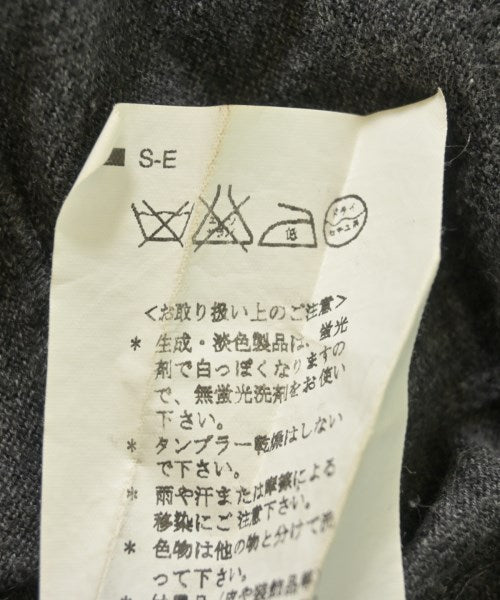 S-E
低
ドライ
セキユ系
<お取り扱い上のご注意>
* 生成・淡色製品は、蛍光
剤で白っぽくなりますの
で、無蛍光洗剤をお使い
下さい。
* タンブラー乾燥はしない
で下さい。
* 雨や汗または摩擦による
移染にご注意下さい。
* 色物は他の物と分けて洗
って下さい。